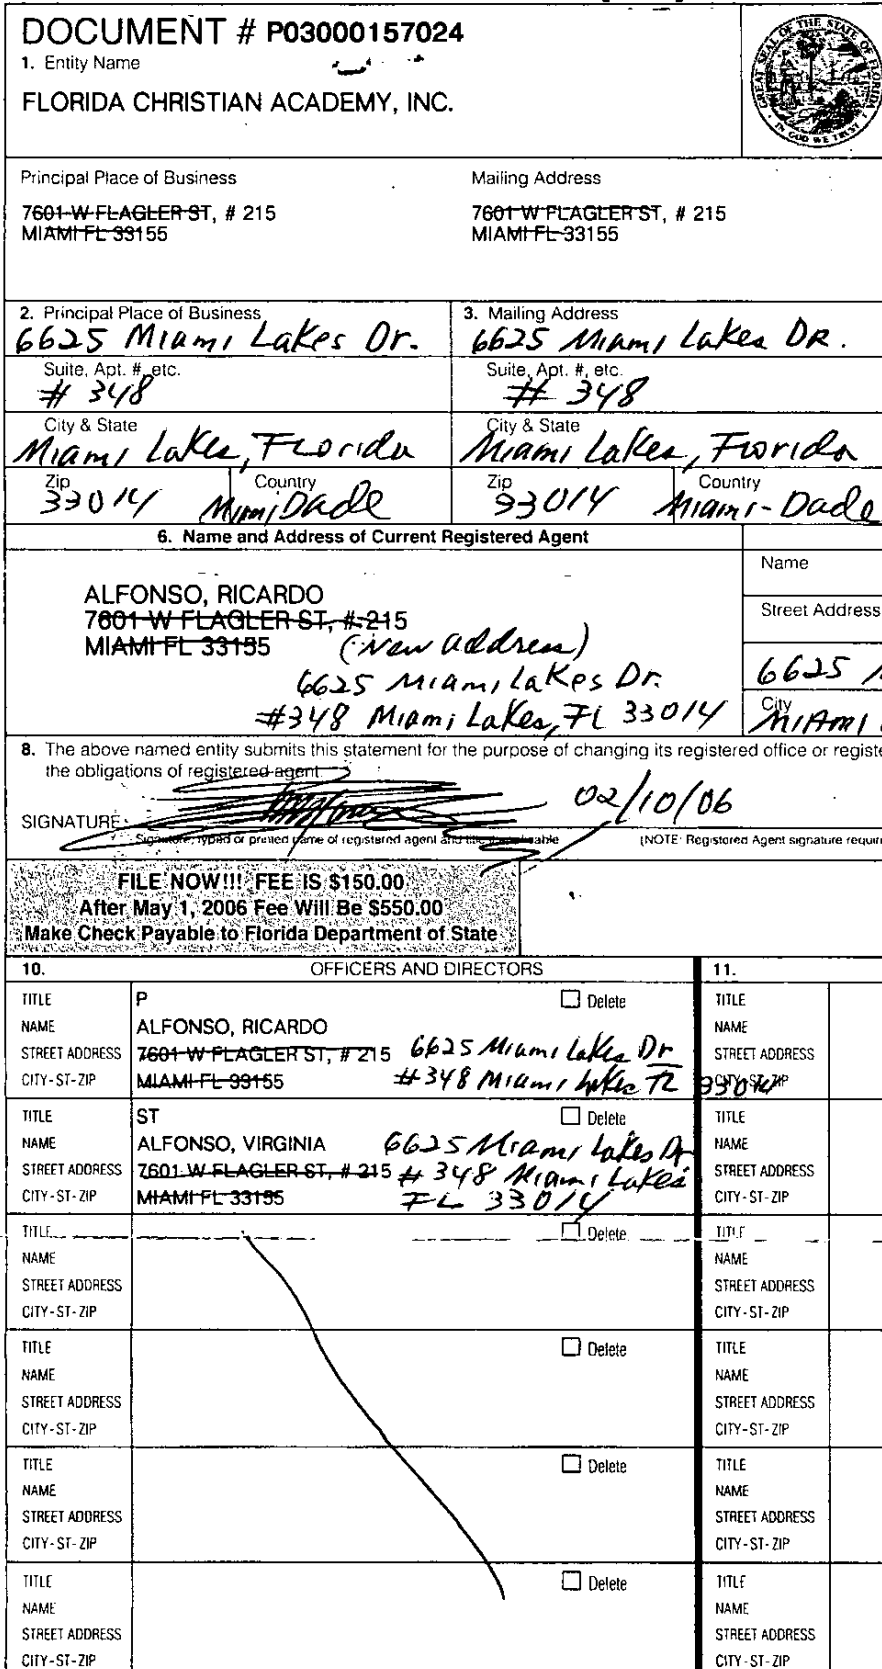 DOCUMENT # P03000157024
1. Entity Name
FLORIDA CHRISTIAN ACADEMY, INC.
GREAT SEAL OF THE STATE OF FLORIDA
IN GOD WE TRUST
Principal Place of Business
Mailing Address
7601 W FLAGLER ST, # 215
MIAMI FL 33155
7601 W FLAGLER ST, # 215
MIAMI FL 33155
2. Principal Place of Business
6625 Miami Lakes Dr.
3. Mailing Address
6625 Miami Lakes DR.
Suite, Apt. #, etc.
# 348
Suite, Apt. #, etc.
# 348
City & State
Miami Lakes, Florida
City & State
Miami Lakes, Florida
Zip
33014
Country
Mimi Dade
Zip
33014
Country
Miami-Dade
6. Name and Address of Current Registered Agent
ALFONSO, RICARDO
7601 W FLAGLER ST, # 215
MIAMI FL 33155
(New address)
6625 Miami Lakes Dr.
#348 Miami Lakes, FL 33014
Name
Street Address
6625
City
MIAMI
8. The above named entity submits this statement for the purpose of changing its registered office or registe
the obligations of registered agent.
SIGNATURE
02/10/06
Signature, typed or printed name of registered agent and title if applicable
(NOTE: Registered Agent signature requir
FILE NOW!!! FEE IS $150.00
After May 1, 2006 Fee Will Be $550.00
Make Check Payable to Florida Department of State
10. OFFICERS AND DIRECTORS
11.
TITLE P Delete
NAME ALFONSO, RICARDO
STREET ADDRESS 7601 W FLAGLER ST, # 215 6625 Miami Lakes Dr
CITY-ST-ZIP MIAMI FL 33155 #348 Miami Lakes FL 33014
TITLE
NAME
STREET ADDRESS
CITY-ST-ZIP
TITLE ST Delete
NAME ALFONSO, VIRGINIA 6625 Miami Lakes Dr
STREET ADDRESS 7601 W FLAGLER ST, # 215 # 348 Miami Lakes
CITY-ST-ZIP MIAMI FL 33155 FL 33014
TITLE
NAME
STREET ADDRESS
CITY-ST-ZIP
TITLE Delete
NAME
STREET ADDRESS
CITY-ST-ZIP
TITLE
NAME
STREET ADDRESS
CITY-ST-ZIP
TITLE Delete
NAME
STREET ADDRESS
CITY-ST-ZIP
TITLE
NAME
STREET ADDRESS
CITY-ST-ZIP
TITLE Delete
NAME
STREET ADDRESS
CITY-ST-ZIP
TITLE
NAME
STREET ADDRESS
CITY-ST-ZIP
TITLE Delete
NAME
STREET ADDRESS
CITY-ST-ZIP
TITLE
NAME
STREET ADDRESS
CITY-ST-ZIP